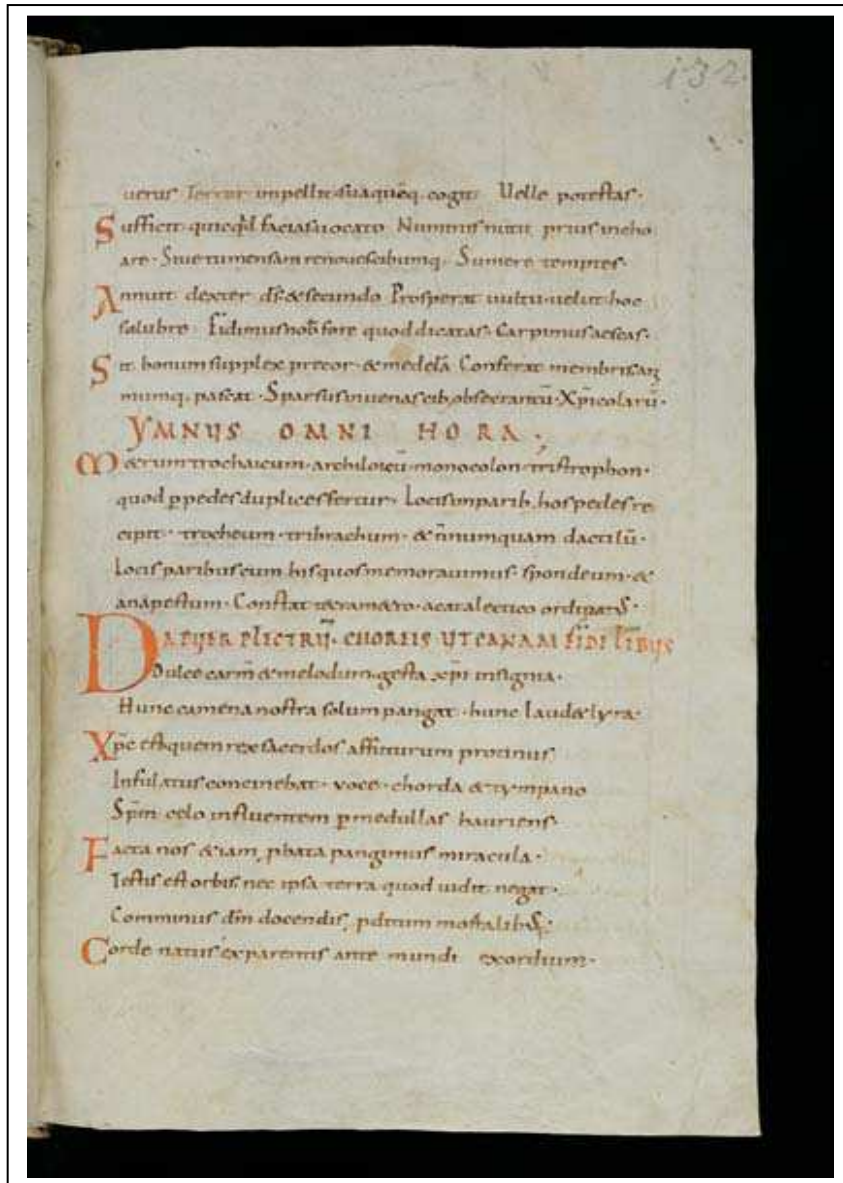 132.
uerus Terror impellit suaquēq. cogit Uelle potestas·
Sufficit quicqd facias uocato Numinis nutu prius incho
are· Siue tu mensam renoues cibumq. Sumere temptes·
Annuit dexter ds. & secundo Prosperat uultu· uelut hoc
salubre Fidimus nob fore quod dicatas· Carpimus aescas·
Sit bonum supplex precor· & medelā Conferat membris. an
mumq. pascat· Sparsus in uenas cib. obsecrantū· Xpicolarū·
YMNUS OMNI HORA;
M&rum trochaicum· archiloicū· monocolon· tristrophon·
quod p pedes duplices fertur· Locis inparib. hos pedes re
cipit· trocheum· tribrachum· & ñ numquam dactilū·
Locis paribus cum his quos memorauimus· spondeum· &
anapestum· Constat t&ram&ro· acatalectico
DA PUER PLECTRŪ· CHOREIS UT CANAM FIDELIBUS
Dulce carm̄ & melodum· gesta xpi insignia·
Hunc camena nostra solum pangat· hunc laud& lyra·
Xpc est quem rex sacerdos affuturum protinus
Infulatus concinebat· uoce· chorda & tympano
Spm celo influentem p medullas hauriens·
Facta nos &iam pbata pangimus miracula·
Testis est orbis. nec ipsa terra quod uidit negat·
Comminus dm docendis pditum
Corde natus ex parentis ante mundi exordium·